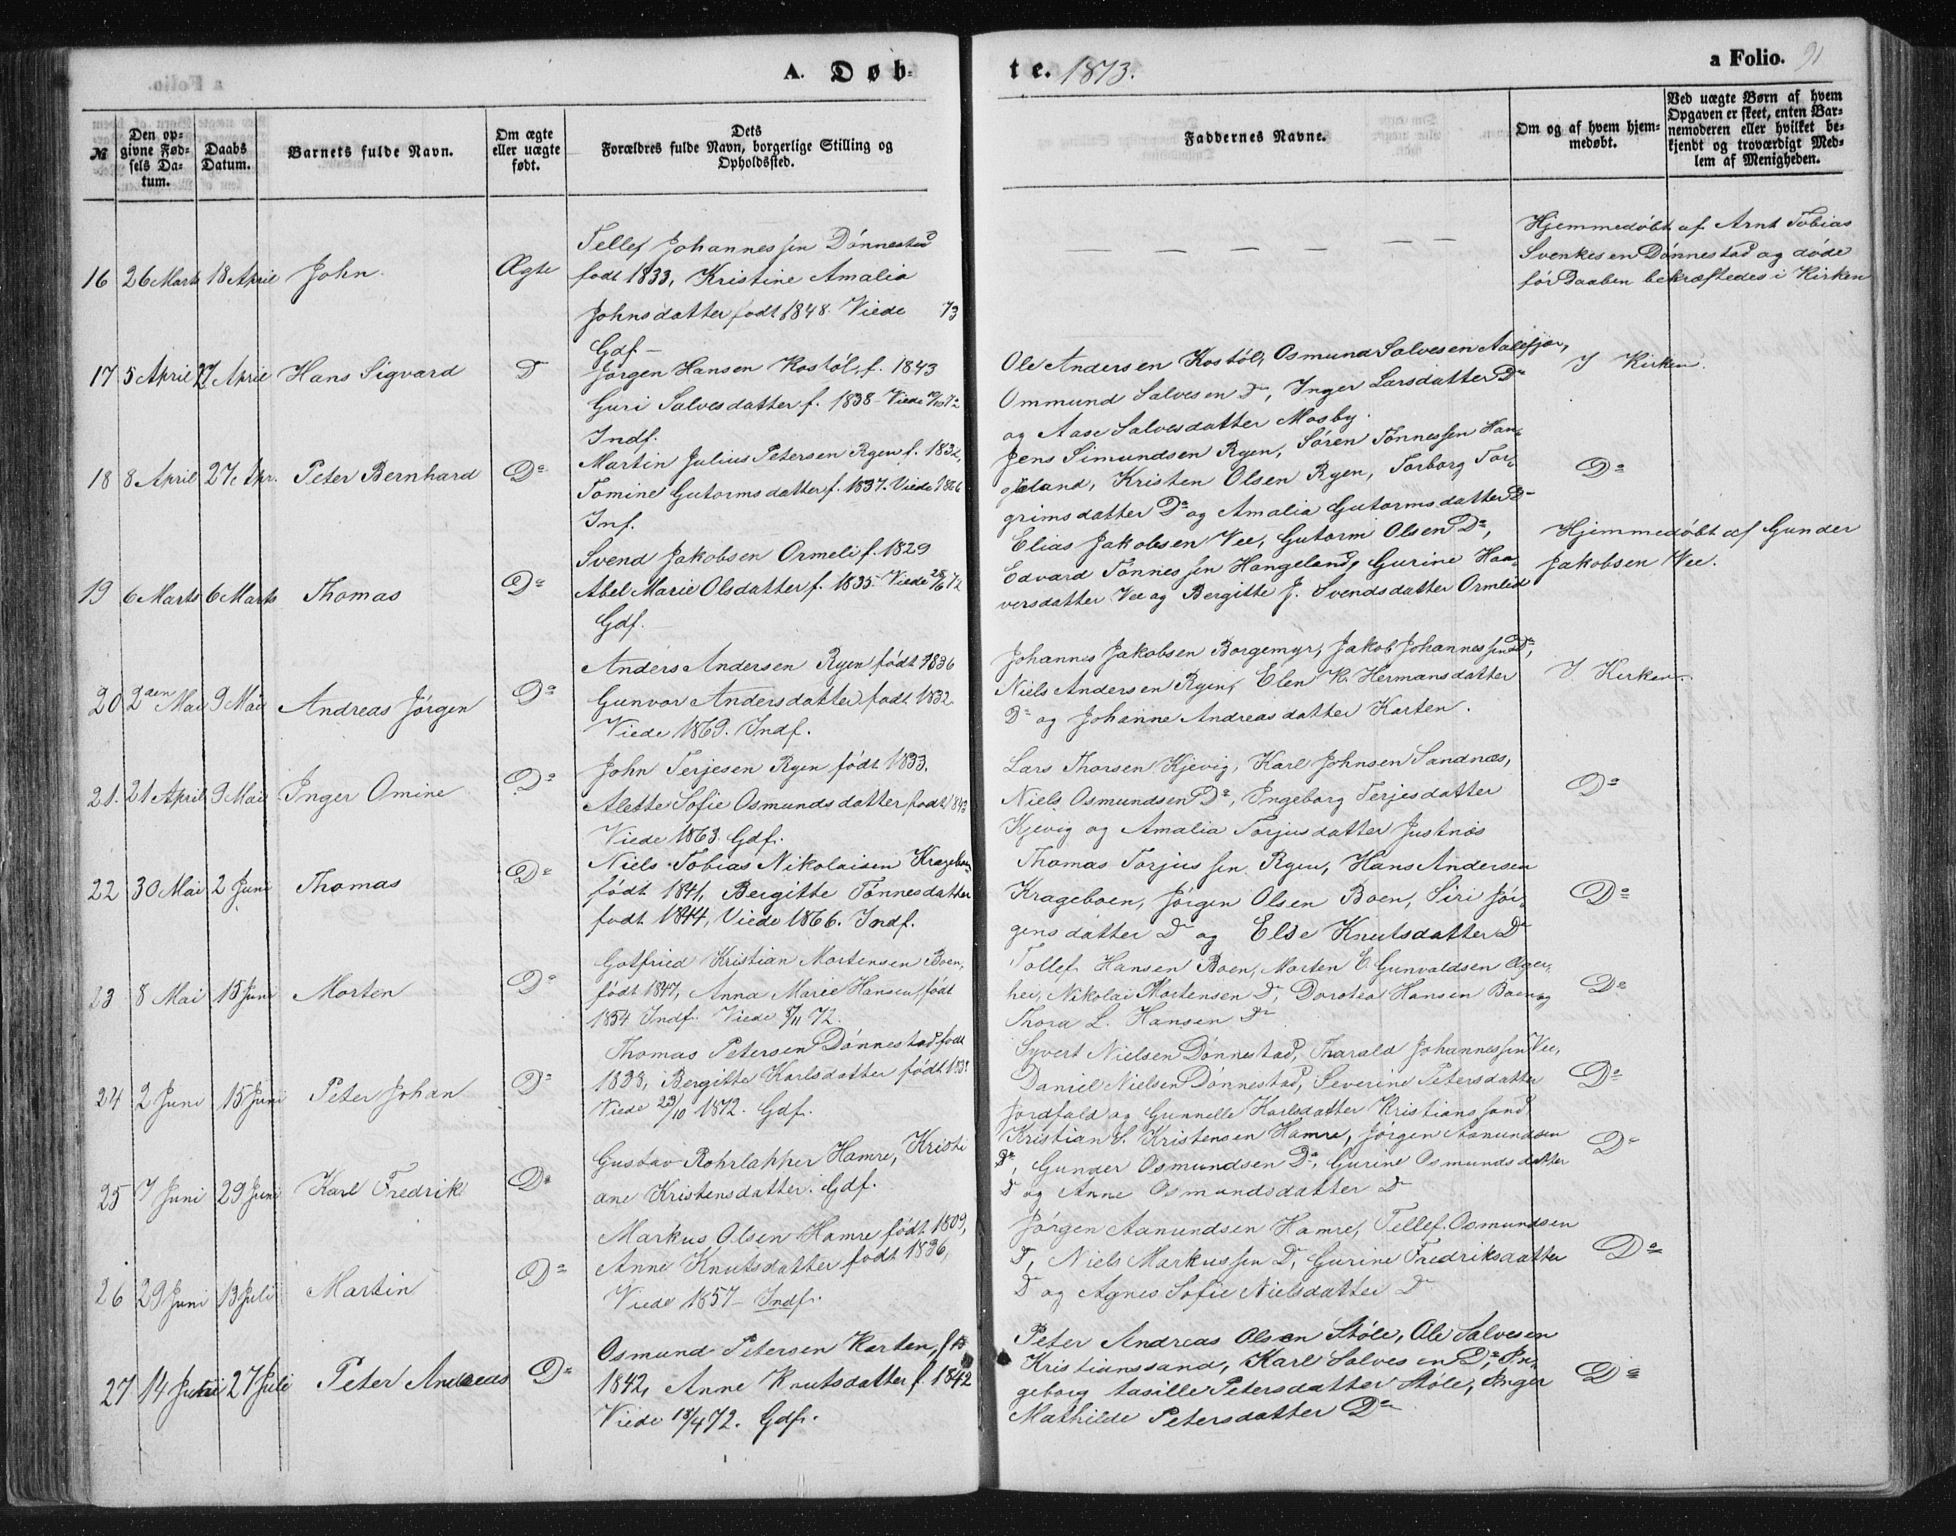 A. Døb-
te. 1873.
a Folio. 91
№
Den op-
givne Fød-
sels Da-
tum.
Daabs
Datum.
Barnets fulde Navn.
Om ægte
eller uægte
født.
Dets
Forældres fulde Navn, borgerlige Stilling og
Opholdssted.
Faddernes Navne.
Om og af hvem hjem-
medøbt.
Ved uægte Børn af hvem
Opgaven er skeet, enten Bar-
nemoderen eller hvilket be-
kjendt og troværdigt Med-
lem af Menigheden.
16 26 Marts 18 April John Ægte
Tellef Johannessen Dønnestad
født 1833, Kristine Amalia
Johnsdatter født 1848. Viede 73
Gdf.
— — — — —
Hjemmedøbt af Arnt Tobias
Svenkesen Dønnestad og døde
før Daaben bekræftedes i Kirken
17 5 April 27 April Hans Sigvard D
Jørgen Hansen Kostøl, f. 1843
Guri Salvesdatter f. 1838 Viede
Indf.
Ole Andersen Kostøl, Osmund Salvesen Aalefjær,
Ommund Salvesen Do, Inger Larsdatter Do
og Aase Salvesdatter Mosby.
I Kirken.
18 8 April 27 Apr. Peter Bernhard Do
Martin Julius Petersen Ryen f. 1832,
Tomine Gutormsdatter f. 1837. Viede 1866
Inf.
Jens Simundsen Ryen, Søren Tønnessen Han-
geland, Kristen Olsen Ryen, Torborg Tor-
grimsdatter Do og Amalia Gutormsdatter Do
Do
19 6 Marts 6 Marts Thomas Do
Svend Jakobsen Ormeli f. 1829
Abel Marie Olsdatter f. 1835 Viede 28/6 72
Gdf.
Elias Jakobsen Vee, Gutorm Olsen Do,
Edvard Tønnessen Hangeland, Gurine Haa-
versdatter Vee og Bergitte J. Svendsdatter Ormlid
Hjemmedøbt af Gunder
Jakobsen Vee.
20 2den Mai 9 Mai Andreas Jørgen Do
Anders Andersen Ryen født 1836
Gunvor Andersdatter født 1832
Viede 1869. Indf.
Johannes Jakobsen Borgemyr, Jakob Johannessen Do,
Niels Andersen Ryen, Elen K. Hermansdatter
Do og Johanne Andreasdatter Karten.
I Kirken.
21. 21 April 9 Mai Inger Omine Do
John Terjesen Ryen født 1833.
Alette Sofie Osmundsdatter født 1842
Viede 1863. Gdf.
Lars Thorsen Kjevig, Karl Johnsen Sandnæs,
Niels Osmundsen Do, Ingeborg Terjesdatter
Kjevig og Amalia Torjusdatter Justnæs
Do
22 30 Mai 2 Juni Thomas Do
Niels Tobias Nikolaisen Krageboen
født 1841, Bergitte Tønnesdatter
født 1844, Viede 1866. Indf.
Thomas Torjussen Ryen, Hans Andersen
Krageboen, Jørgen Olsen Boen, Siri Jør-
gensdatter Do og Else Knutsdatter Do
Do
23 8 Mai 15 Juni Morten Do
Gotfried Kristian Mortensen Boen,
født 1847, Anna Marie Hansen, født
1854 Indf. Viede 5/11 72.
Tollef Hansen Boen, Morten E. Gunvaldsen Ager-
hei, Nikolai Mortensen Do, Dorotea Hansen Boen og
Thora L. Hansen Do
Do
24 2 Juni 15 Juni Peter Johan Do
Thomas Petersen Dønnestad født
1838, Bergitte Karlsdatter født
Viede 29/10 1872. Gdf.
Syvert Nielsen Dønnestad, Tharald Johannessen Vee,
Daniel Nielsen Dønnestad, Severine Petersdatter
Jordfald og Gunnelle Karlsdatter Kristianssand
Do
25 7 Juni 29 Juni Karl Fredrik Do
Gustav Rohrlapper Hamre, Kristi
ane Kristensdatter. Gdf.
Kristian S. Kristensen Hamre, Jørgen Aanundsen
Do, Gunder Osmundsen Do, Gurine Osmundsdatter
Do og Anne Osmundsdatter Do
Do
26 29 Juni 13 Juli Martin Do
Markus Olsen Hamre født 1809,
Anne Knutsdatter født 1836,
Viede 1857 — Indf.
Jørgen Aanundsen Hamre, Tellef Osmundsen
Do, Niels Markussen Do, Gurine Fredriksdatter
Do og Agnes Sofie Nielsdatter Do
Do
27 14 Juni 27 Juli Peter Andreas Do
Osmund Petersen Karten,
1842, Anne Knutsdatter f. 1842
Viede 18/4 72. Gdf.
Peter Andreas Olsen Støle, Ole Salvesen
Kristianssand, Karl Salvesen Do, In-
geborg Tasille Petersdatter Støle, Inger
Mathilde Petersdatter Do
Do